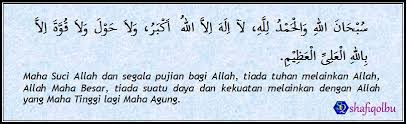 سُبْحَانَ اللهِ وَالْحَمْدُ لِلَّهِ، لآ اِلَهَ اِلاَّ اللهُ اَكْبَرُ، وَلاَ حَوْلَ وَلاَ قُوَّةَ اِلاَّ
بِاللهِ الْعَلِىِّ الْعَظِيْمِ.
Maha Suci Allah dan segala pujian bagi Allah, tiada tuhan melainkan Allah,
Allah Maha Besar, tiada suatu daya dan kekuatan melainkan dengan Allah
yang Maha Tinggi lagi Maha Agung.
shafiqolbu